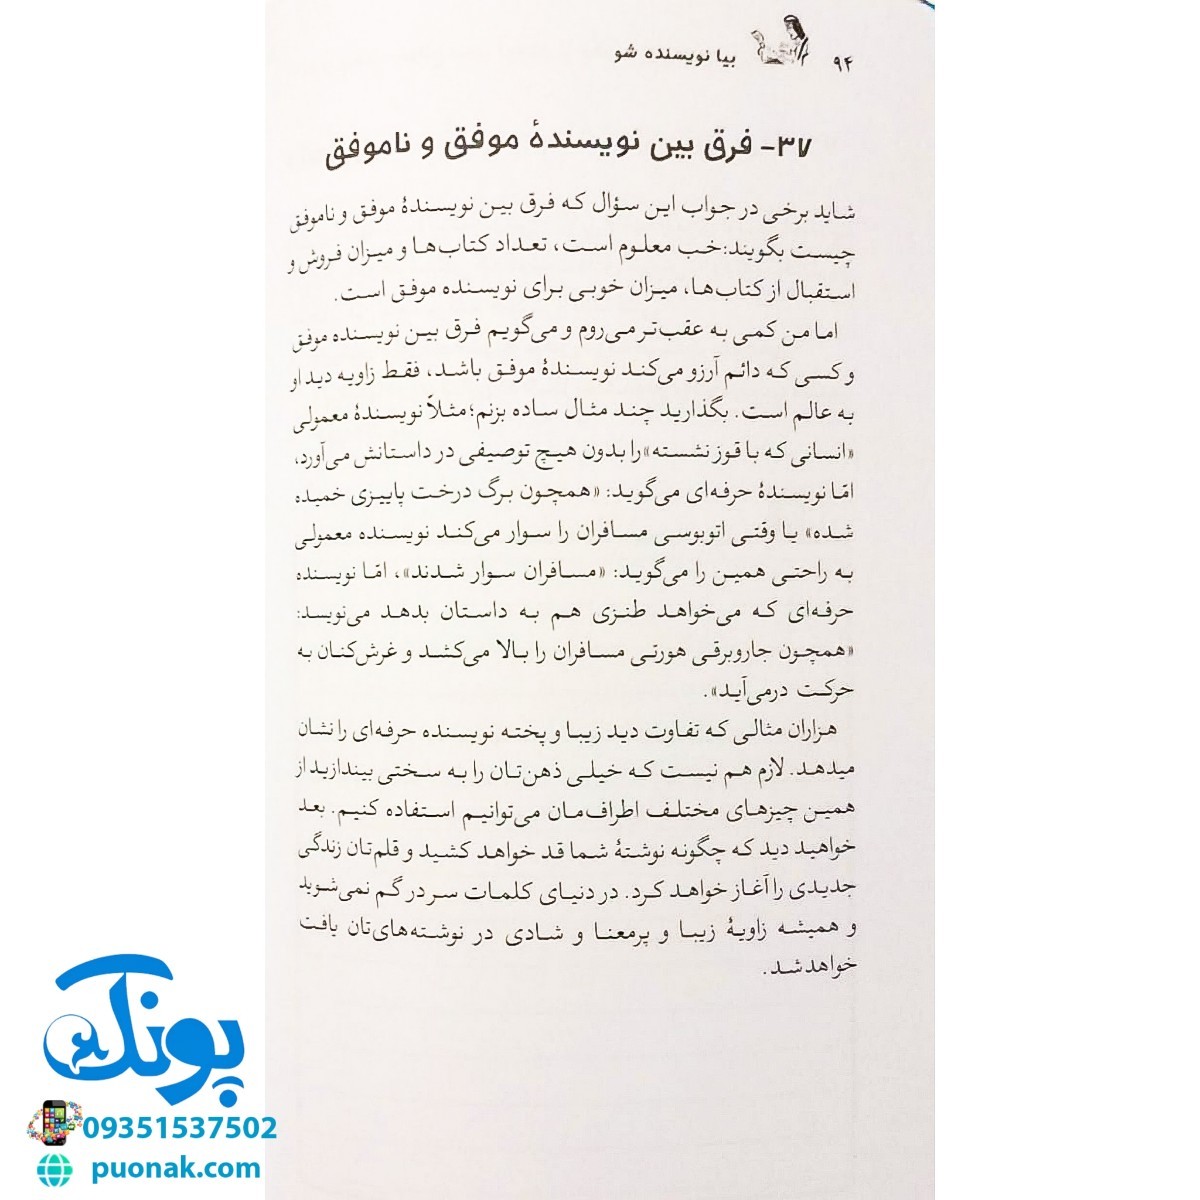 ۹۴ بیا نویسنده شو
۳۷- فرق بین نویسندۀ موفق و ناموفق
شاید برخی در جواب این سؤال که فرق بین نویسندۀ موفق و ناموفق
چیست بگویند:خب معلوم است، تعداد کتاب‌ها و میزان فروش و
استقبال از کتاب‌ها، میزان خوبی برای نویسنده موفق است.
اما من کمی به عقب‌تر می‌روم و می‌گویم فرق بین نویسنده موفق
و کسی که دائم آرزو می‌کند نویسندۀ موفق باشد، فقط زاویه دید او
به عالم است. بگذارید چند مثال ساده بزنم؛ مثلاً نویسندۀ معمولی
«انسانی که با قوز نشسته» را بدون هیچ توصیفی در داستانش می‌آورد،
امّا نویسندۀ حرفه‌ای می‌گوید: «همچون برگ درخت پاییزی خمیده
شده» یا وقتی اتوبوسی مسافران را سوار می‌کند نویسنده معمولی
به راحتی همین را می‌گوید: «مسافران سوار شدند»، امّا نویسنده
حرفه‌ای که می‌خواهد طنزی هم به داستان بدهد می‌نویسد:
«همچون جاروبرقی هورتی مسافران را بالا می‌کشد و غرش‌کنان به
حرکت درمی‌آید».
هزاران مثالی که تفاوت دید زیبا و پخته نویسنده حرفه‌ای را نشان
میدهد. لازم هم نیست که خیلی ذهن‌تان را به سختی بیندازید از
همین چیزهای مختلف اطراف‌مان می‌توانیم استفاده کنیم. بعد
خواهید دید که چگونه نوشتۀ شما قد خواهد کشید و قلم‌تان زندگی
جدیدی را آغاز خواهد کرد. در دنیای کلمات سردرگم نمی‌شوید
و همیشه زاویۀ زیبا و پرمعنا و شادی در نوشته‌های‌تان یافت
خواهد شد.
پونک
09351537502
puonak.com